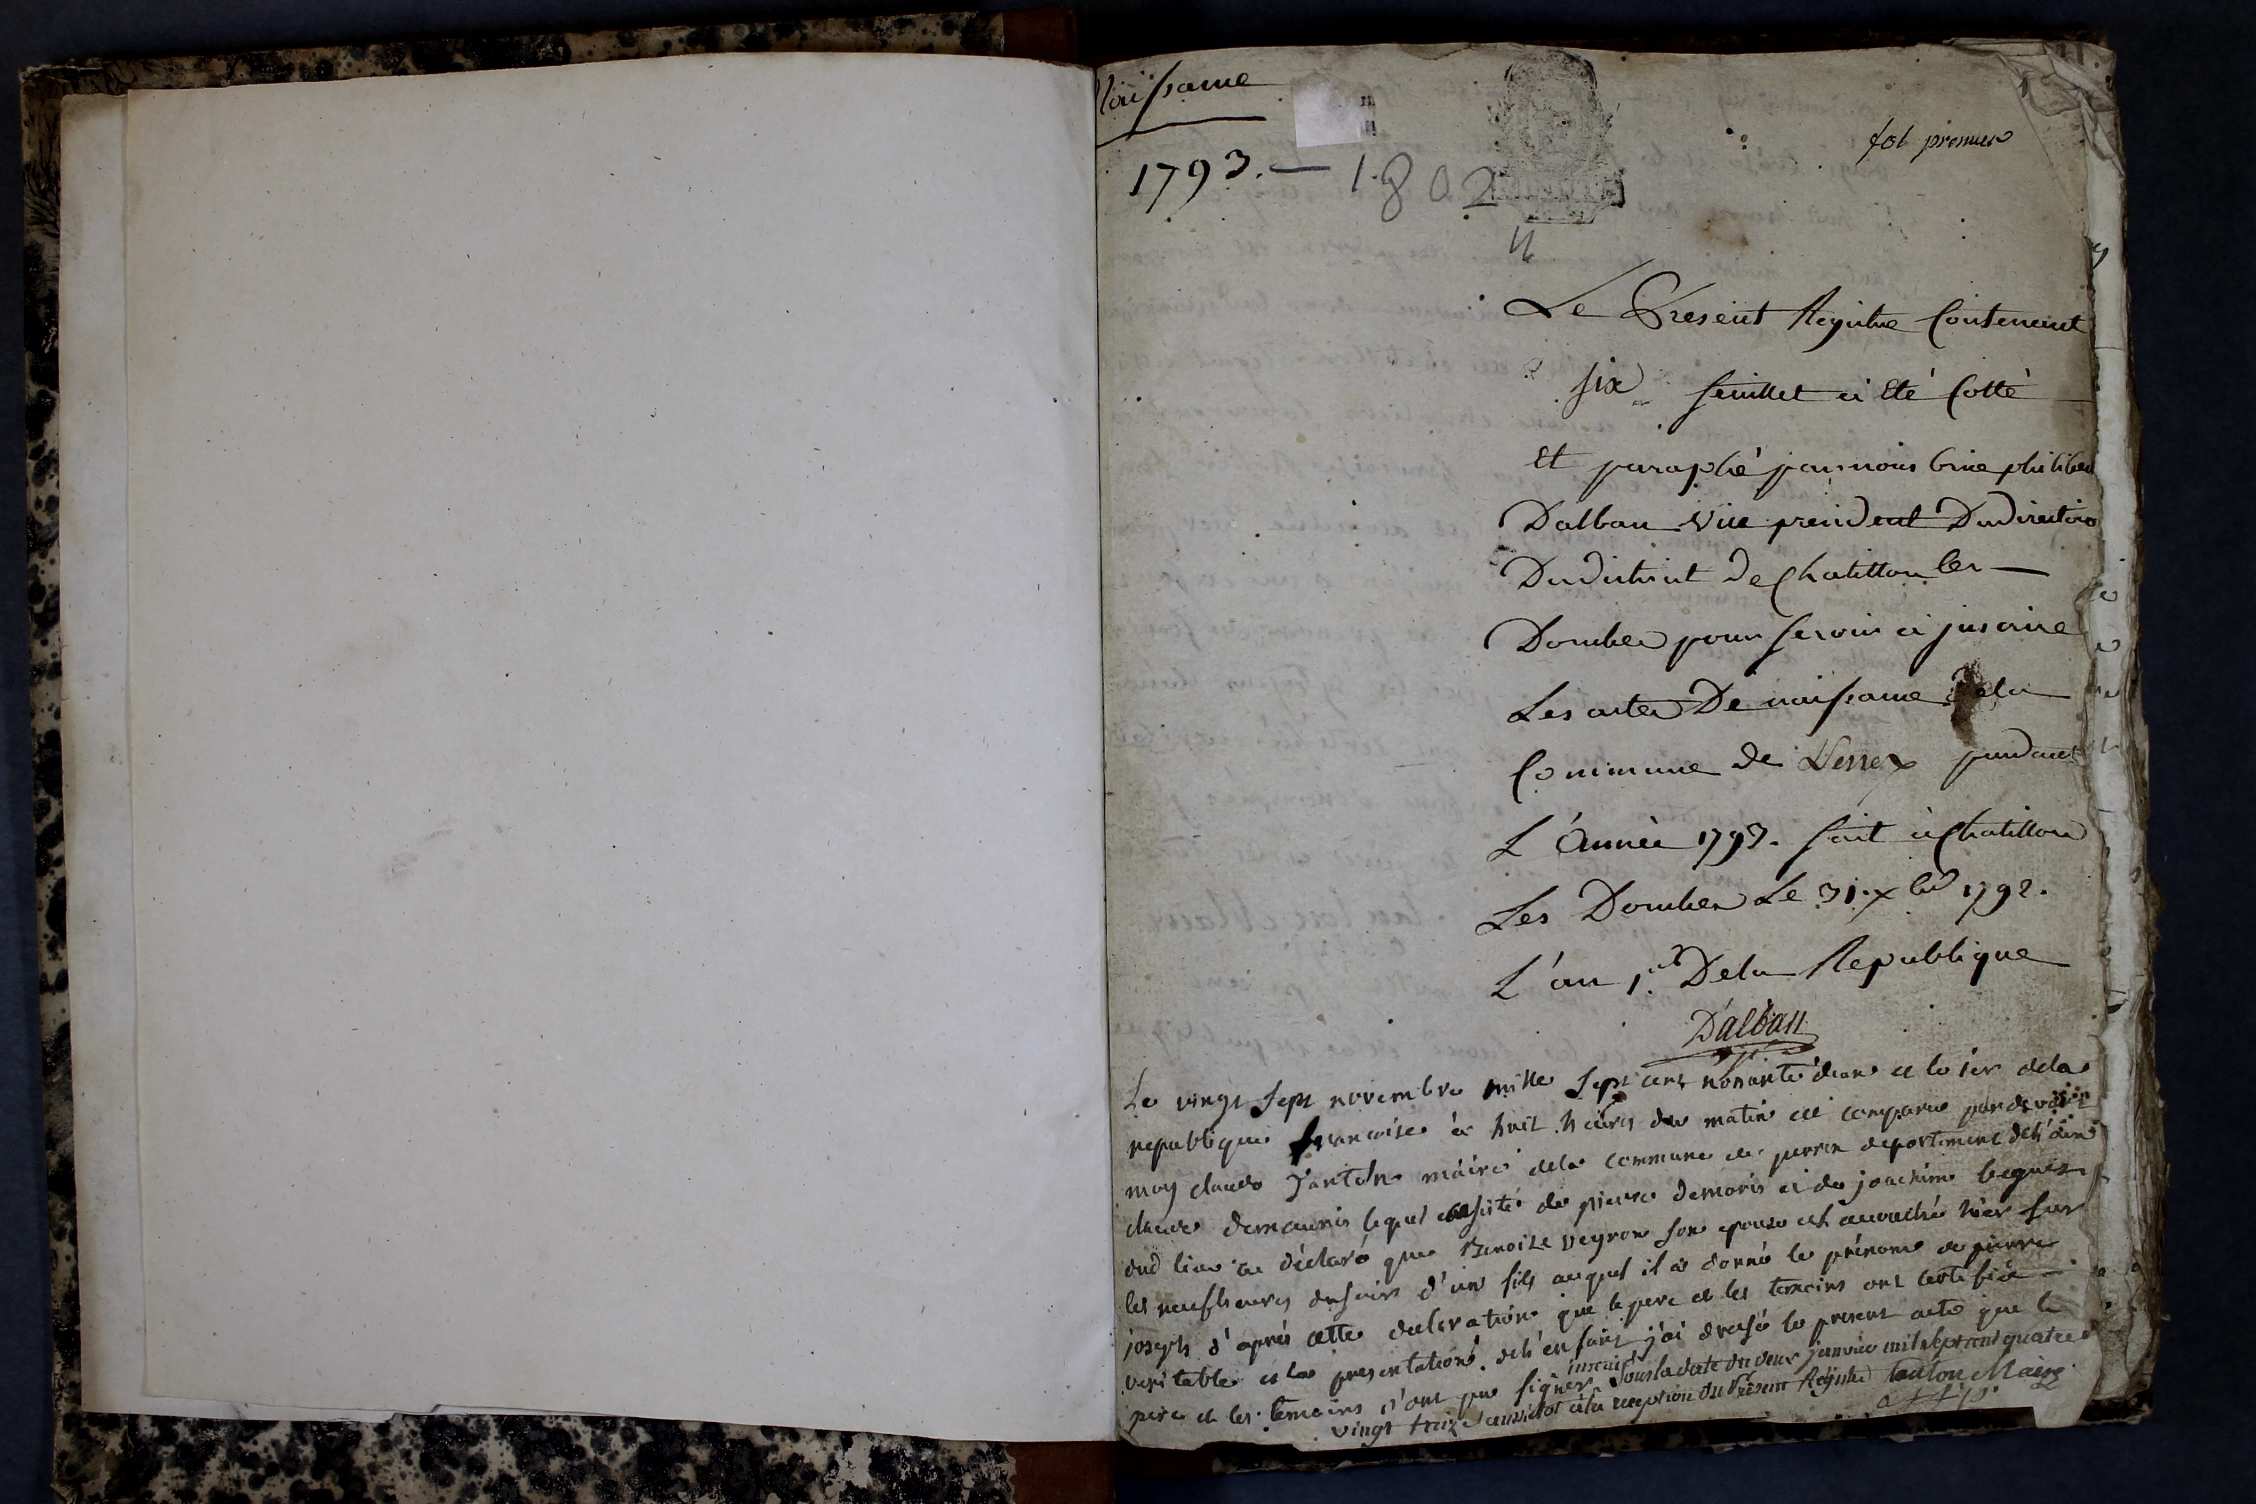 Naissance
1793. — 1802
fol premier
Le Present Registre Contenant
six feuillet a Eté Cotté
Et paraphé par nous philiber
Dalban vice president Du directoire
Du district De Chatillon les
Dombes pour servir a inscrire
Les actes De naissance De la
Commune de pendant
L'Année 1793. fait a Chatillon
Les Dombes Le 31. xbre 1792.
L'an 1er De la Republique
Dalban
Le vingt sept novembre mille sept cent nonante deux et le 1er de la
republique francoise à huit heures du matin est comparu pardevant
moy claude maire de la commune de departement de l'ain
claude demauris lequel assisté de pierre demoris et de joachim
dud lieu a déclaré que Benoite veyron son epouse est accouché hier sur
les neuf heures du soir d'un fils auquel il a donné le prénom de pierre
joseph d'après cette declaration que le pere et les temoins ont certifiée
veritable et la presentation de l'enfant j'ai dressé le present acte que le
pere et les temoins n'ont pu signer inscrit sous la date du deux janvier mil sept cent quatre
vingt treize aussitot a la reception du Present Registre Maire